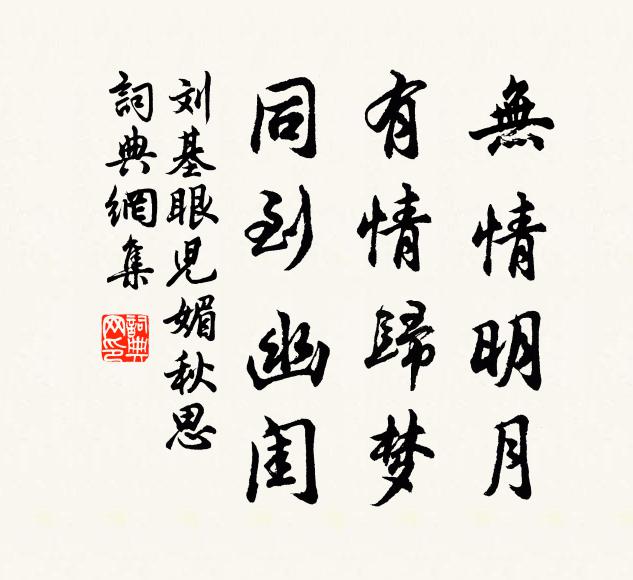 無情明月
有情歸梦
同到幽闺
刘基眼児媚秋思
詞典網集
詞典网印